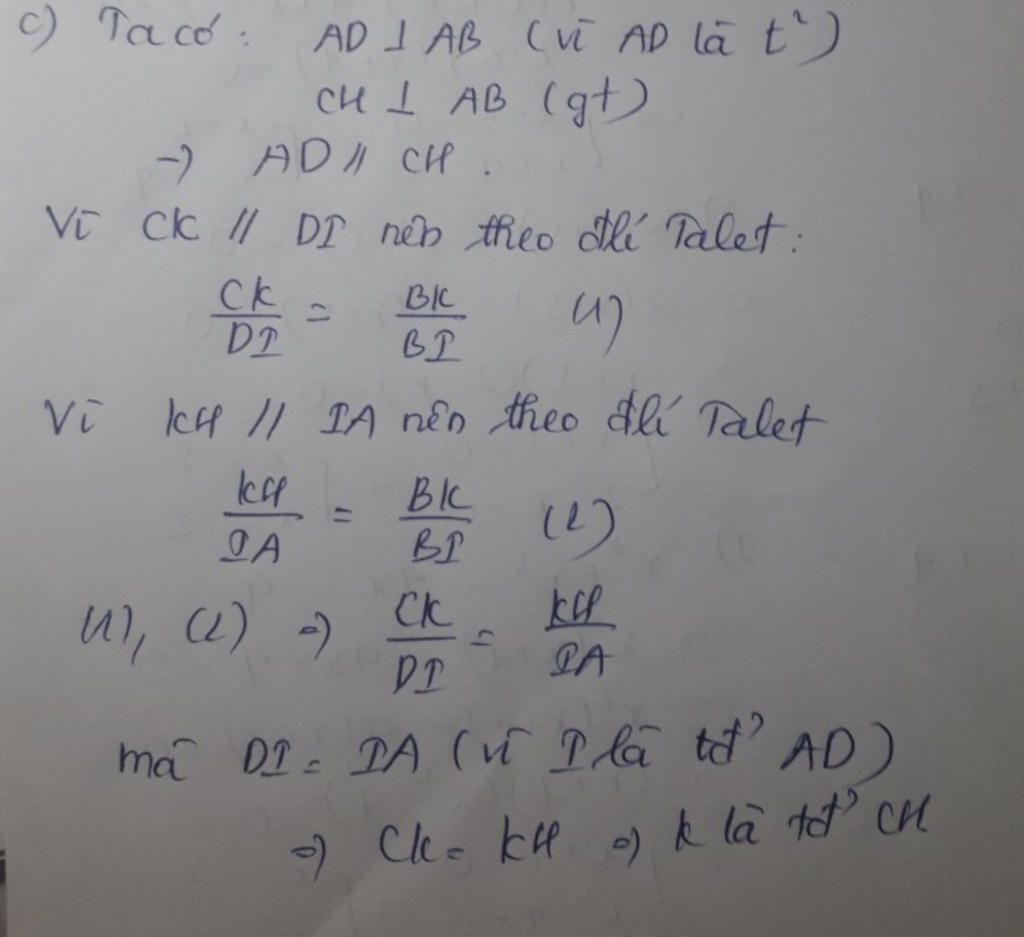 c) Ta có: AD ⊥ AB (vì AD là t²)
CH ⊥ AB (gt)
→ AD // CH.
Vì CK // DI nên theo đlí Talet:
CK/DI = BK/BI (1)
Vì KH // IA nên theo đlí Talet
KH/IA = BK/BI (2)
(1), (2) ⇒ CK/DI = KH/IA
mà DI = IA (vì I là tđ' AD)
⇒ CK = KH ⇒ K là tđ' CH